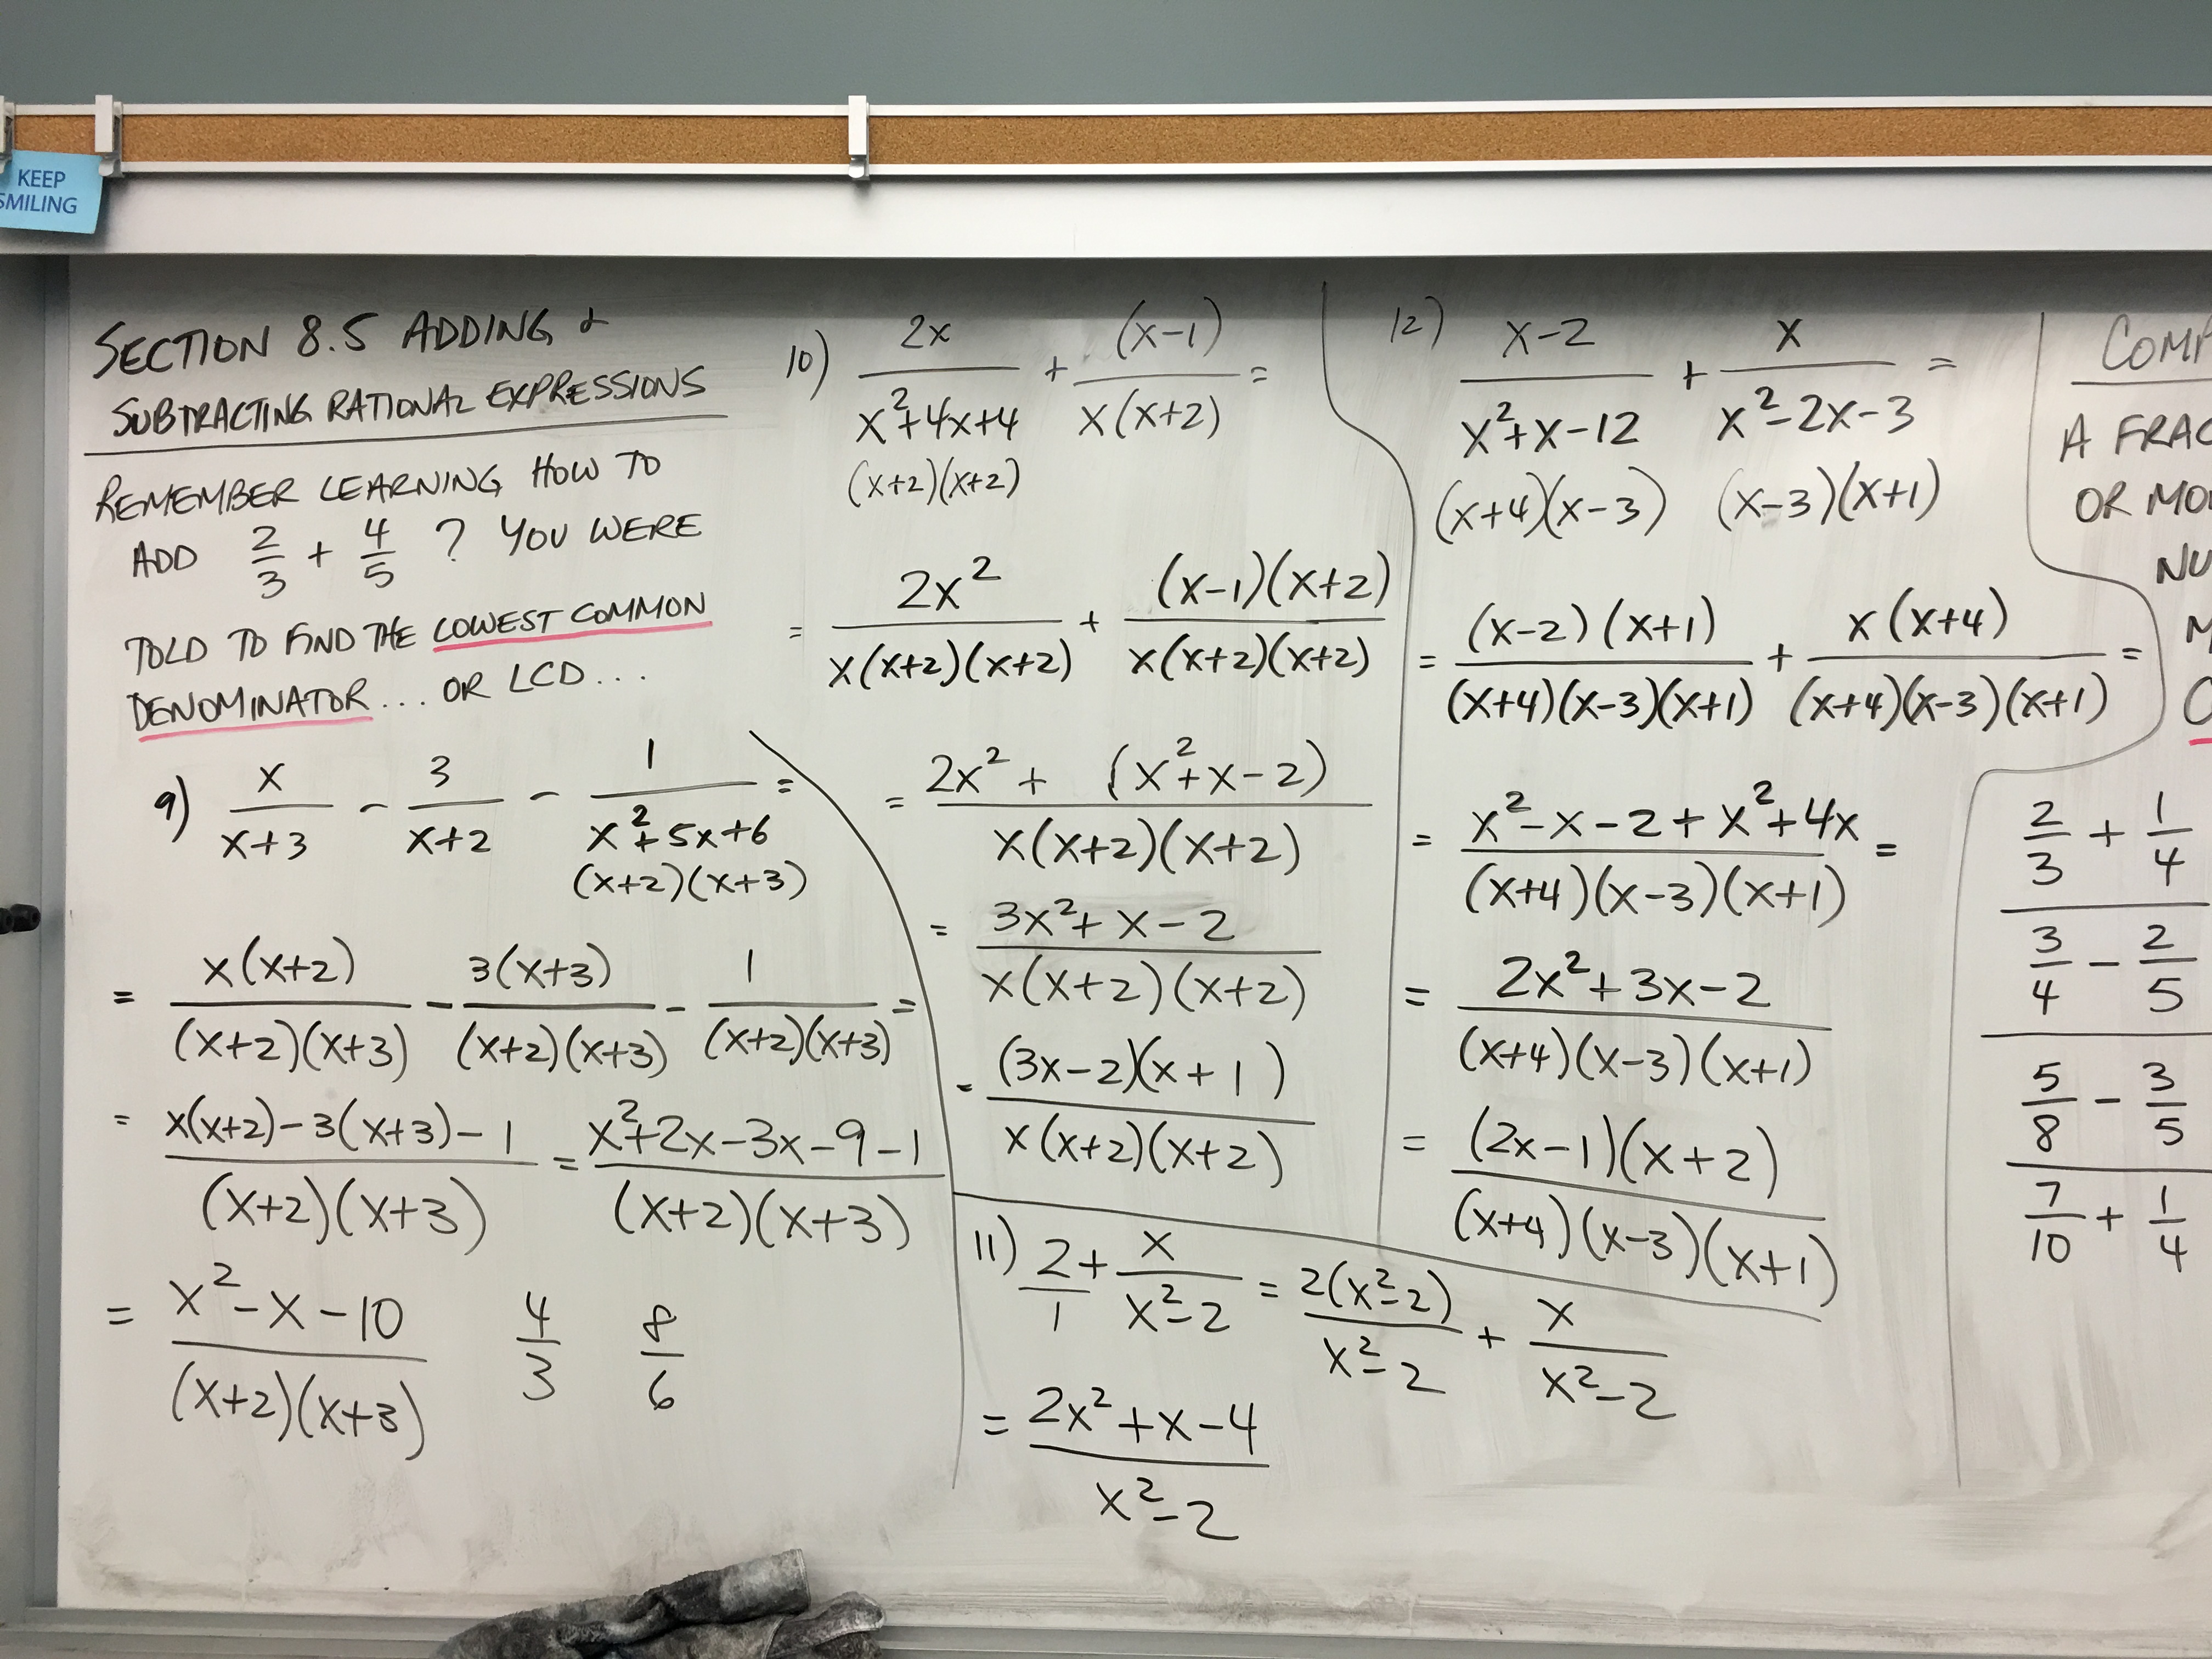 KEEP
SMILING
SECTION 8.5 ADDING &
SUBTRACTING RATIONAL EXPRESSIONS
REMEMBER LEARNING HOW TO
ADD 2/3 + 4/5 ? YOU WERE
TOLD TO FIND THE LOWEST COMMON
DENOMINATOR... OR LCD...
9) x/(x+3) - 3/(x+2) - 1/(x²+5x+6) =
(x+2)(x+3)
= x(x+2)/((x+2)(x+3)) - 3(x+3)/((x+2)(x+3)) - 1/((x+2)(x+3)) =
= (x(x+2)-3(x+3)-1)/((x+2)(x+3)) = (x²+2x-3x-9-1)/((x+2)(x+3))
= (x²-x-10)/((x+2)(x+3)) 4/3 8/6
10) 2x/(x²+4x+4) + (x-1)/(x(x+2)) =
(x+2)(x+2)
= 2x²/(x(x+2)(x+2)) + (x-1)(x+2)/(x(x+2)(x+2))
= (2x² + (x²+x-2))/(x(x+2)(x+2))
= (3x²+x-2)/(x(x+2)(x+2))
= (3x-2)(x+1)/(x(x+2)(x+2))
11) 2/1 + x/(x²-2) = 2(x²-2)/(x²-2) + x/(x²-2)
= (2x²+x-4)/(x²-2)
12) (x-2)/(x²+x-12) + x/(x²-2x-3) =
(x+4)(x-3) (x-3)(x+1)
= (x-2)(x+1)/((x+4)(x-3)(x+1)) + x(x+4)/((x+4)(x-3)(x+1)) =
= (x²-x-2+x²+4x)/((x+4)(x-3)(x+1)) =
= (2x²+3x-2)/((x+4)(x-3)(x+1))
= (2x-1)(x+2)/((x+4)(x-3)(x+1))
COMP
A FRAC
OR MO
NU
M
2/3 + 1/4
3/4 - 2/5
5/8 - 3/5
7/10 + 1/4